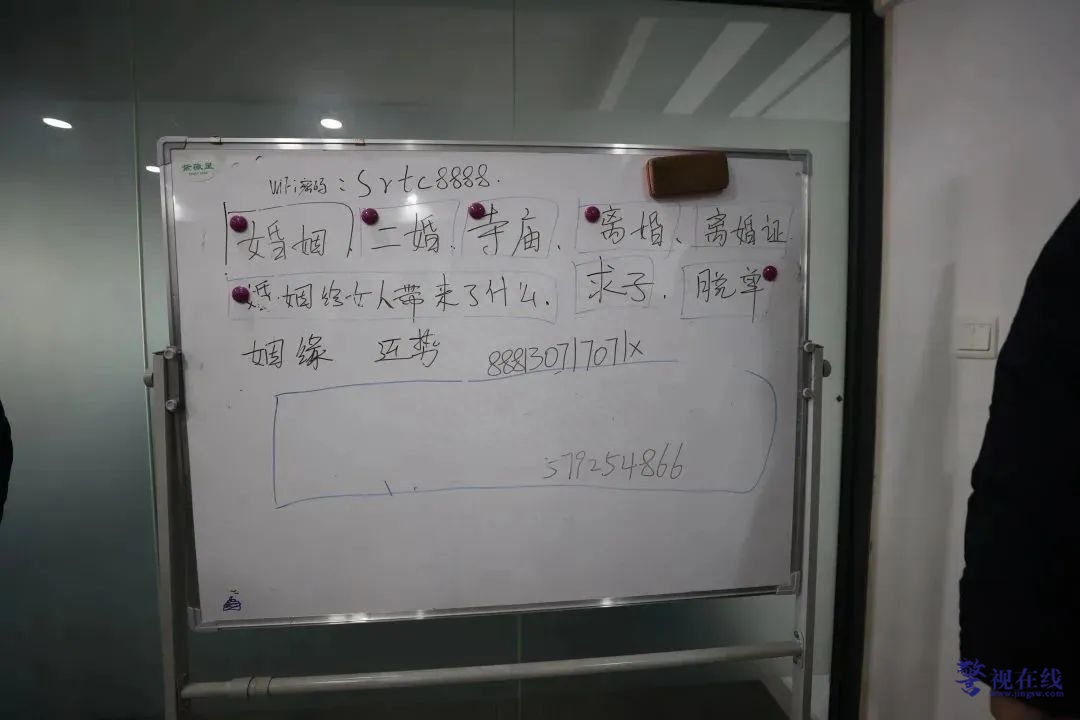 紫微星
WiFi密码：Srtc8888.
婚姻、二婚、寺庙、离婚、离婚证
婚姻给女人带来了什么、求子、脱单
姻缘 运势 888130717071x
579254866
警视在线
www.jingsw.com